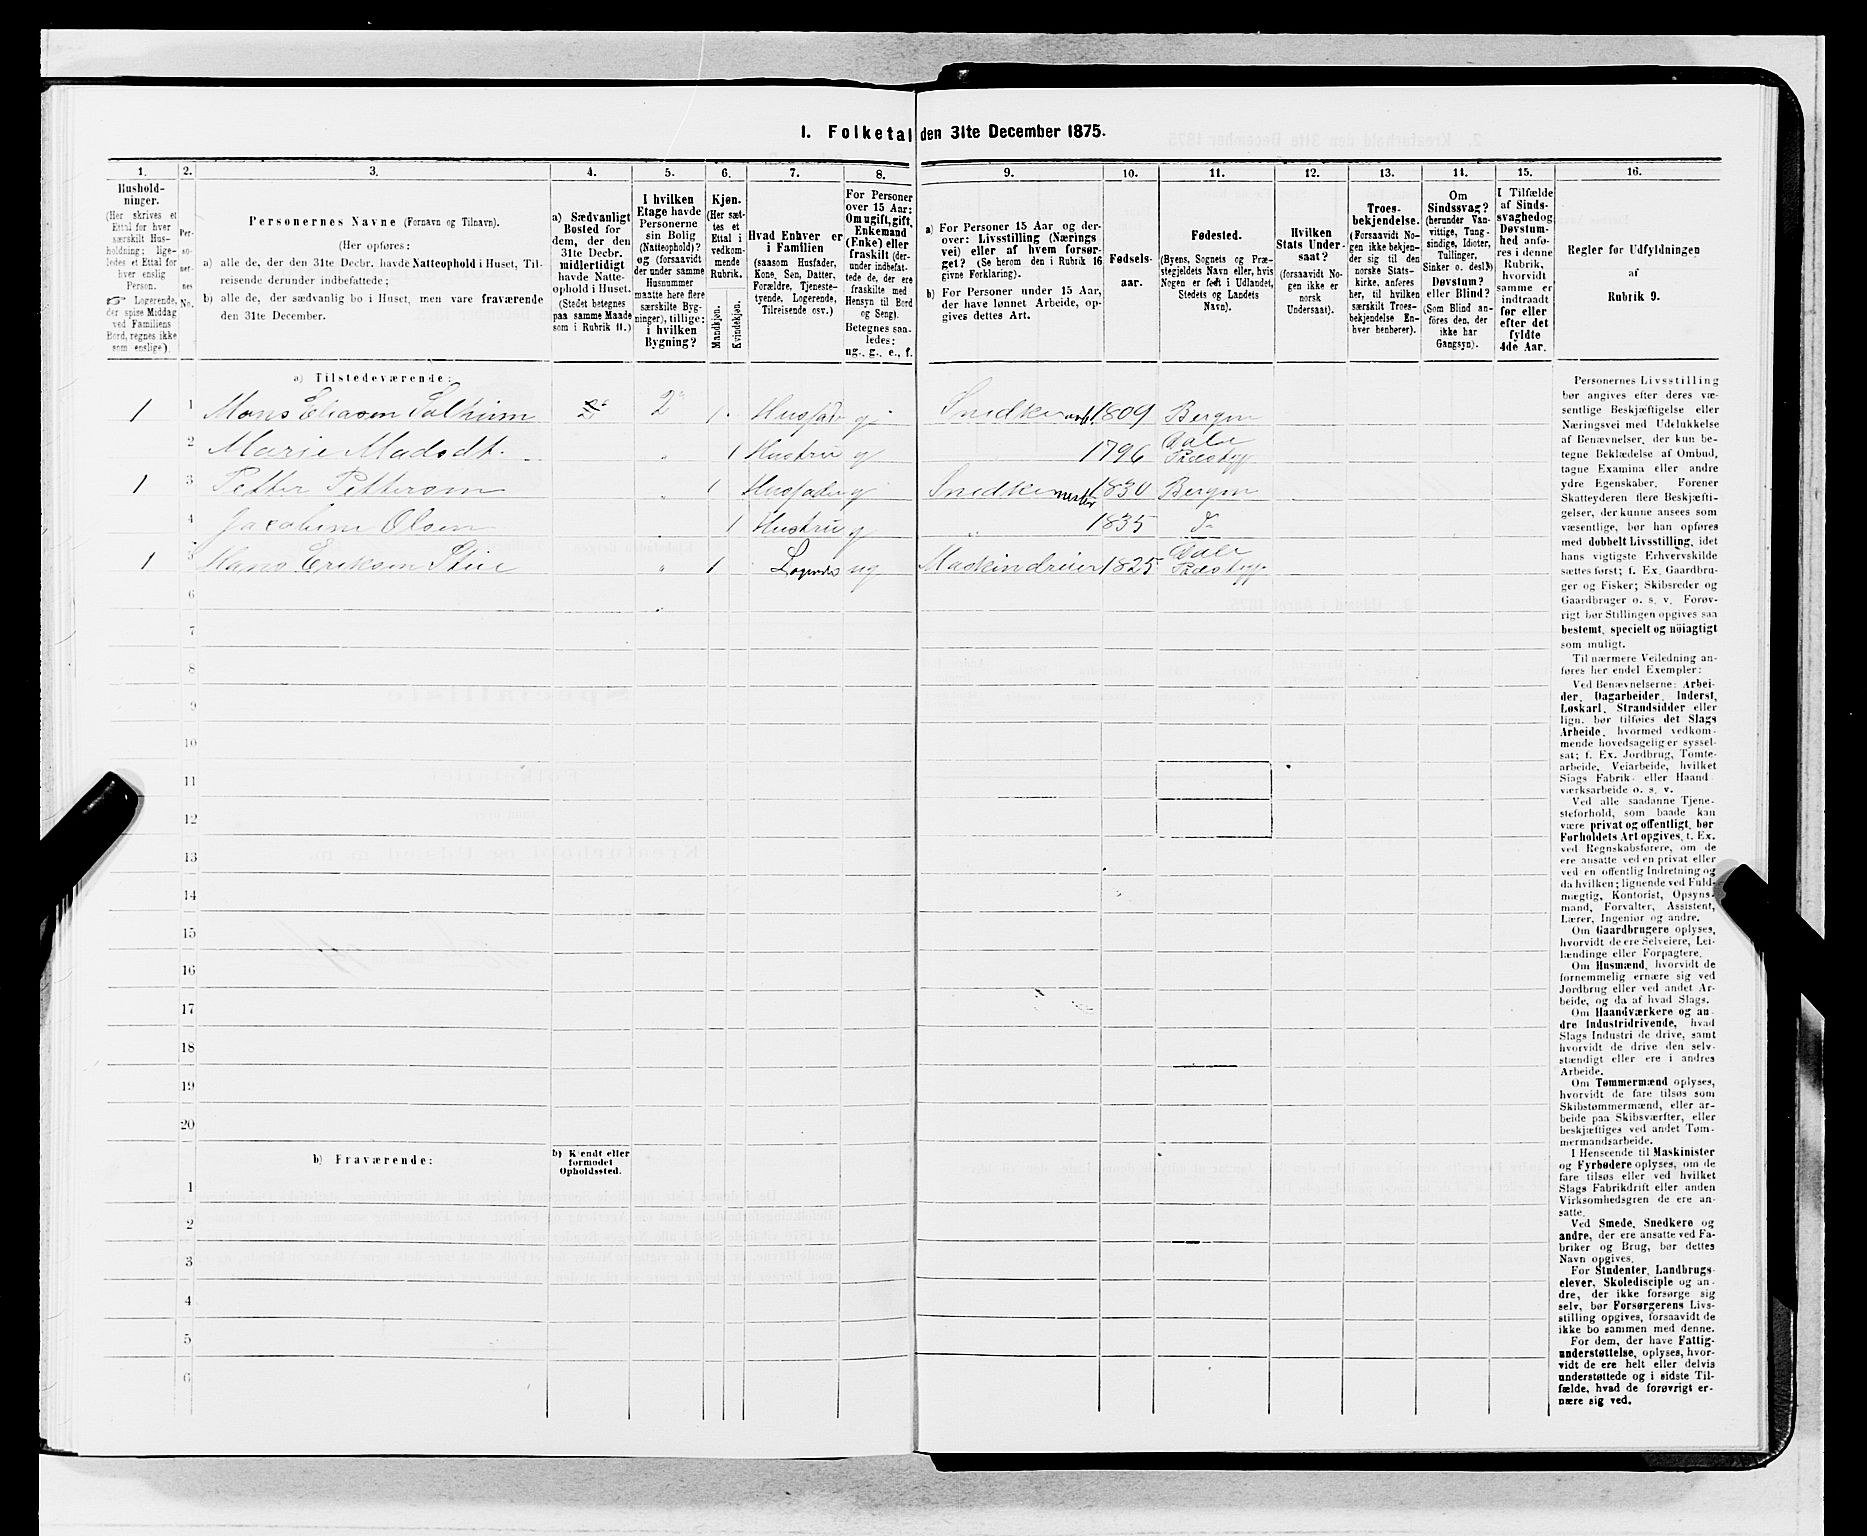 1. Folketal den 31te December 1875.
1. 2. 3. 4. 5. 6. 7. 8. 9. 10. 11. 12. 13. 14. 15. 16.
Hushold-
ninger.
(Her skrives et
Ettal for hver
særskilt Hus-
holdning; lige-
ledes et Ettal for
hver enslig
Person.
☞ Logerende,
der spise Middag
ved Familiens
Bord, regnes ikke
som enslige).
Per-
so-
ner-
nes
No.
Personernes Navne (Fornavn og Tilnavn).
(Her opføres:
a) alle de, der den 31te Decbr. havde Natteophold i Huset, Til-
reisende derunder indbefattede;
b) alle de, der sædvanlig bo i Huset, men vare fraværende
den 31te December.
a) Sædvanligt
Bosted for
dem, der den
31te Decbr.
midlertidigt
havde Natte-
ophold i Huset.
(Stedet betegnes
paa samme Maade
som i Rubrik 11.)
I hvilken
Etage havde
Personerne
sin Bolig
(Natteophold)?
og (forsaavidt
der under samme
Husnummer
maatte høre flere
særskilte Byg-
ninger), tillige:
i hvilken
Bygning?
Kjøn.
(Her sæt-
tes et
Ettal i
vedkom-
mende
Rubrik.
Mandkjøn.
Kvindekjøn.
Hvad Enhver er
i Familien
(saasom Husfader,
Kone, Søn, Datter,
Forældre, Tjeneste-
tyende, Logerende,
Tilreisende osv.)
For Personer
over 15 Aar:
Om ugift, gift,
Enkemand
(Enke) eller
fraskilt (der-
under indbefat-
tede de, der ere
fraskilte med
Hensyn til Bord
og Seng).
Betegnes saa-
ledes:
ug., g., e., f.
a) For Personer 15 Aar og der-
over: Livsstilling (Nærings
vei) eller af hvem forsør-
get? (Se herom den i Rubrik 16
givne Forklaring).
b) For Personer under 15 Aar,
der have lønnet Arbeide, op-
gives dettes Art.
Fødsels-
aar.
Fødested.
(Byens, Sognets og Præ-
stegjeldets Navn eller, hvis
Nogen er født i Udlandet,
Stedets og Landets
Navn).
Hvilken
Stats Under-
saat?
(forsaavidt No-
gen ikke er
norsk
Undersaat).
Troes-
bekjendelse.
(Forsaavidt No-
gen ikke bekjen-
der sig til den
norske Stats-
kirke, anføres
her, til hvilken
særskilt Troes-
bekjendelse En-
hver henhører).
Om
Sindssvag?
(herunder Van-
vittige, Tung-
sindige, Idioter,
Tullinger,
Sinker o. desl.)
Døvstum?
eller Blind?
(Som Blind an-
føres den, der
ikke har
Gangsyn).
I Tilfælde
af Sinds-
svaghed og
Døvstum-
hed anfø-
res i denne
Rubrik,
hvorvidt
samme er
indtraadt
før eller
efter det
fyldte
4de Aar.
Regler for Udfyldningen
af
Rubrik 9.
a) Tilstedeværende:
1 1 Mons Eliasen 2 1 Husfader g Snedker 1809 Bergen
2 Marie Madsdt. " 1 Hustru g 1796 Dale Præstegj
1 3 Petter Pettersen " 1 Husfader g Snedkermester 1830 Bergen
4 Olsen " 1 Hustru g 1835 "
1 5 Hans Eriksen " 1 Logerende ug 1825 Dale Præstegj
6
7
8
9
10
11
12
13
14
15
16
17
18
19
20
b) Fraværende:
b) Kjendt eller
formodet
Opholdssted.
1
2
3
4
5
6
Personernes Livsstilling
bør angives efter deres væ-
sentlige Beskjæftigelse eller
Næringsvei med Udelukkelse
af Benævnelser, der kun be-
tegne Beklædelse af Ombud,
tagne Examina eller andre
ydre Egenskaber. Forener
Skatteyderen flere Beskjæfti-
gelser, der kunne ansees som
væsentlige, bør han opføres
med dobbelt Livsstilling, idet
hans vigtigste Erhvervskilde
sættes først; f. Ex. Gaardbru-
ger og Fisker; Skibsreder og
Gaardbruger o. s. v. Forøv-
rigt bør Stillingen opgives saa
bestemt, specielt og nöiagtigt
som muligt.
Til nærmere Veiledning an-
føres her endel Exempler:
Ved Benævnelserne: Arbei-
der, Dagarbeider, Inderst,
Løskarl, Strandsidder eller
lign. bør tilføies det Slags
Arbeide, hvormed vedkom-
mende hovedsagelig er syssel-
sat; f. Ex. Jordbrug, Tomte-
arbeide, Veiarbeide, hvilket
Slags Fabrik- eller Haand-
værksarbeide o. s. v.
Ved alle saadanne Tjene-
steforhold, som baade kan
være privat og offentligt, bør
Forholdets Art opgives, t. Ex.
ved Regnskabsførere, om de
ere ansatte ved en privat eller
ved en offentlig Indretning og
da hvilken; lignende ved Fuld-
mægtig, Kontorist, Opsyns-
mand, Forvalter, Assistent,
Lærer, Ingeniør og andre.
Om Gaardbrugere oplyses,
hvorvidt de ere Selveiere, Lei-
lændinge eller Forpagtere.
Om Husmænd, hvorvidt de
fornemmelig ernære sig ved
Jordbrug eller ved andet Ar-
beide, og da af hvad Slags.
Om Haandværkere og an-
dre Industridrivende, hvad
Slags Industri de drive, samt
hvorvidt de drive den selv-
stændigt eller ere i andres
Arbeide.
Om Tømmermænd oplyses,
hvorvidt de fare tilsøs som
Skibstømmermænd, eller ar-
beide paa Skibsværfter, eller
beskjæftiges ved andet Tøm-
mermandsarbeide.
I Henseende til Maskinister
og Fyrbødere oplyses, om de
fare tilsøs eller ved hvilket
Slags Fabrikdrift eller anden
Virksomhedsgren de ere an-
satte.
Ved Smede, Snedkere og
andre, der ere ansatte ved Fa-
briker og Brug, bør dettes
Navn opgives.
For Studenter, Landbrugs-
elever, Skoledisciple og an-
dre, der ikke forsørge sig
selv, bør Forsørgerens Livs-
stilling opgives, forsaavidt de
ikke bo sammen med denne.
For dem, der have Fattig-
understøttelse, oplyses, hvor-
vidt de ere helt eller delvis
understøttede og i sidste Til-
fælde, hvad de forøvrigt er-
nære sig ved.